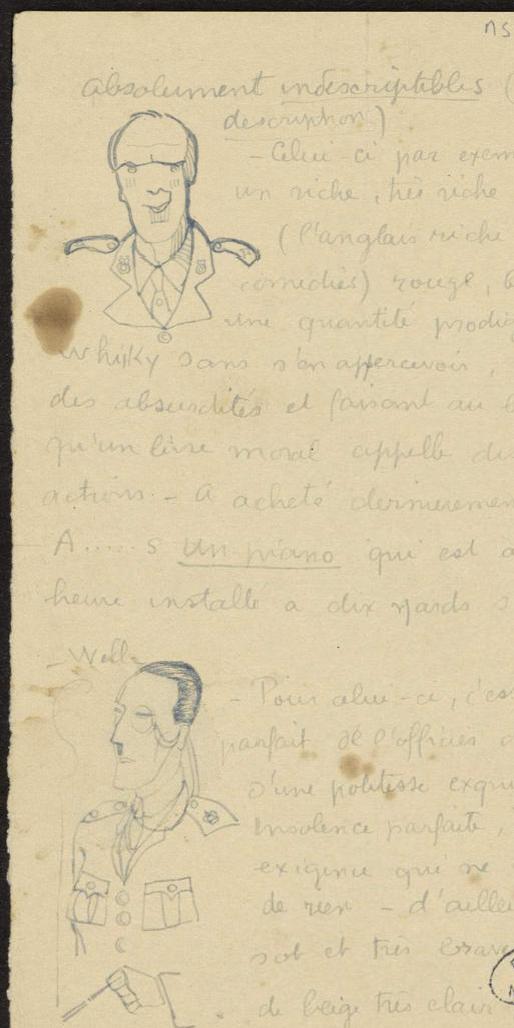 ns
absolument indescriptibles (
description)
- Celui-ci par exem
un riche, très riche
(l'anglais riche
comédies) rouge, b
une quantité prodig
Whisky sans s'en appercevoir,
des absurdités et faisant au b
qu'un livre moral appelle du
actions. - A acheté dernieremen
A.....s un piano qui est a
heure installé a dix yards s
- Well
- Pour celui-ci, c'es
parfait de l'officier a
d'une politesse exqu
insolence parfaite,
exigence qui ne
de rien - d'aille
sot et très brave
de beige très clair